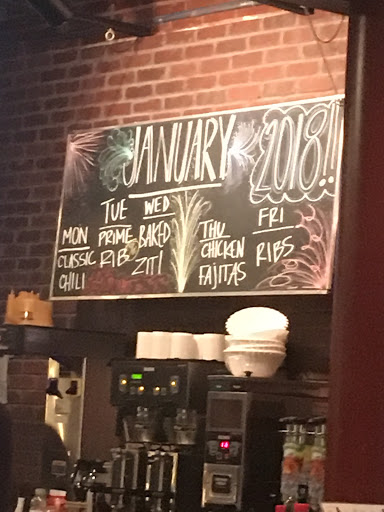 JANUARY 2018!!
MON
CLASSIC
CHILI
TUE
PRIME
RIB
WED
BAKED
ZITI
THU
CHICKEN
FAJITAS
FRI
RIBS